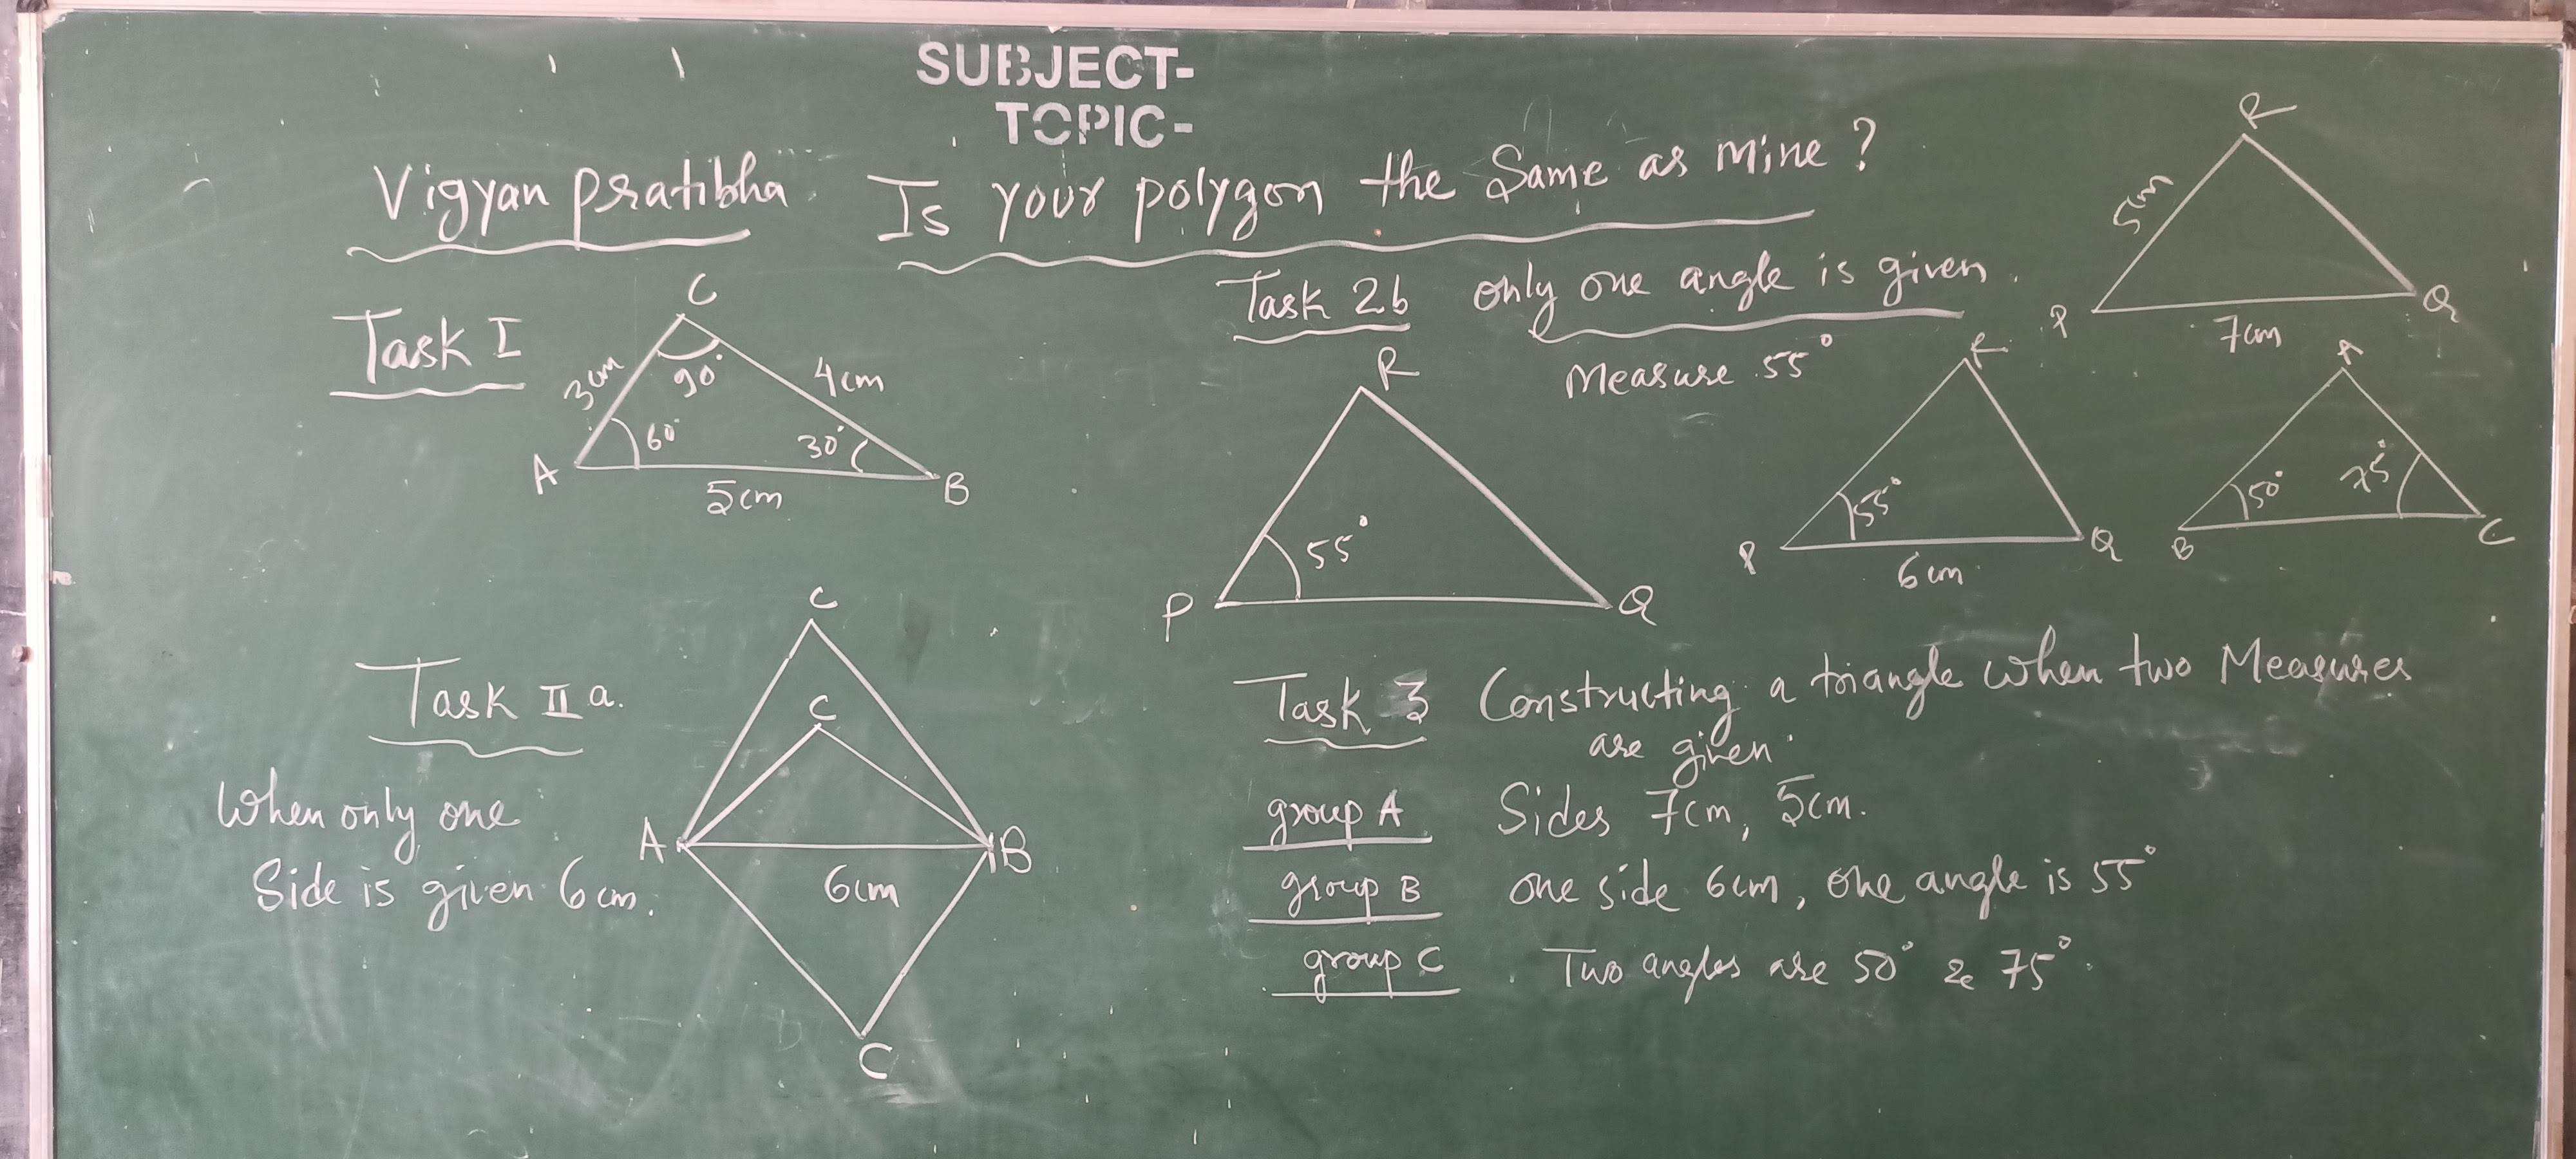 SUBJECT-
TOPIC-
Vigyan pratibha Is your polygon the Same as mine?
Task I
C
3cm
90°
4cm
60°
30°
A
5cm
B
Task 2b only one angle is given.
Measure 55°
R
55°
P
Q
R
5cm
P
7cm
Q
R
55°
P
6cm
Q
A
50°
75°
B
C
Task II a.
When only one
Side is given 6cm.
C
C
A
B
6cm
C
Task 3 Constructing a triangle when two Measures
are given.
group A Sides 7cm, 5cm.
group B one side 6cm, one angle is 55°
group C Two angles are 50° & 75°.